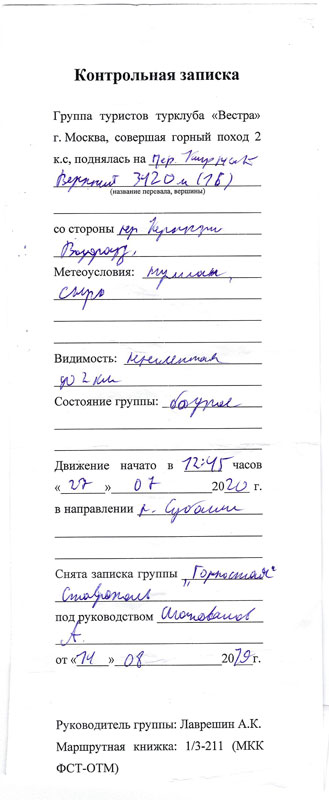 Контрольная записка
Группа туристов турклуба «Вестра»
г. Москва, совершая горный поход 2
к.с, поднялась на пер.
Верхний 3420 м (1Б)
(название перевала, вершины)
со стороны пер.
Метеоусловия: туман,
сыро
Видимость:
до 2 км
Состояние группы: бодрое
Движение начато в 12:45 часов
«27» 07 2020 г.
в направлении р. Субаши
Снята записка группы "Горностай"
Ставрополь
под руководством
А.
от «14» 08 2019 г.
Руководитель группы: Лаврешин А.К.
Маршрутная книжка: 1/3-211 (МКК
ФСТ-ОТМ)